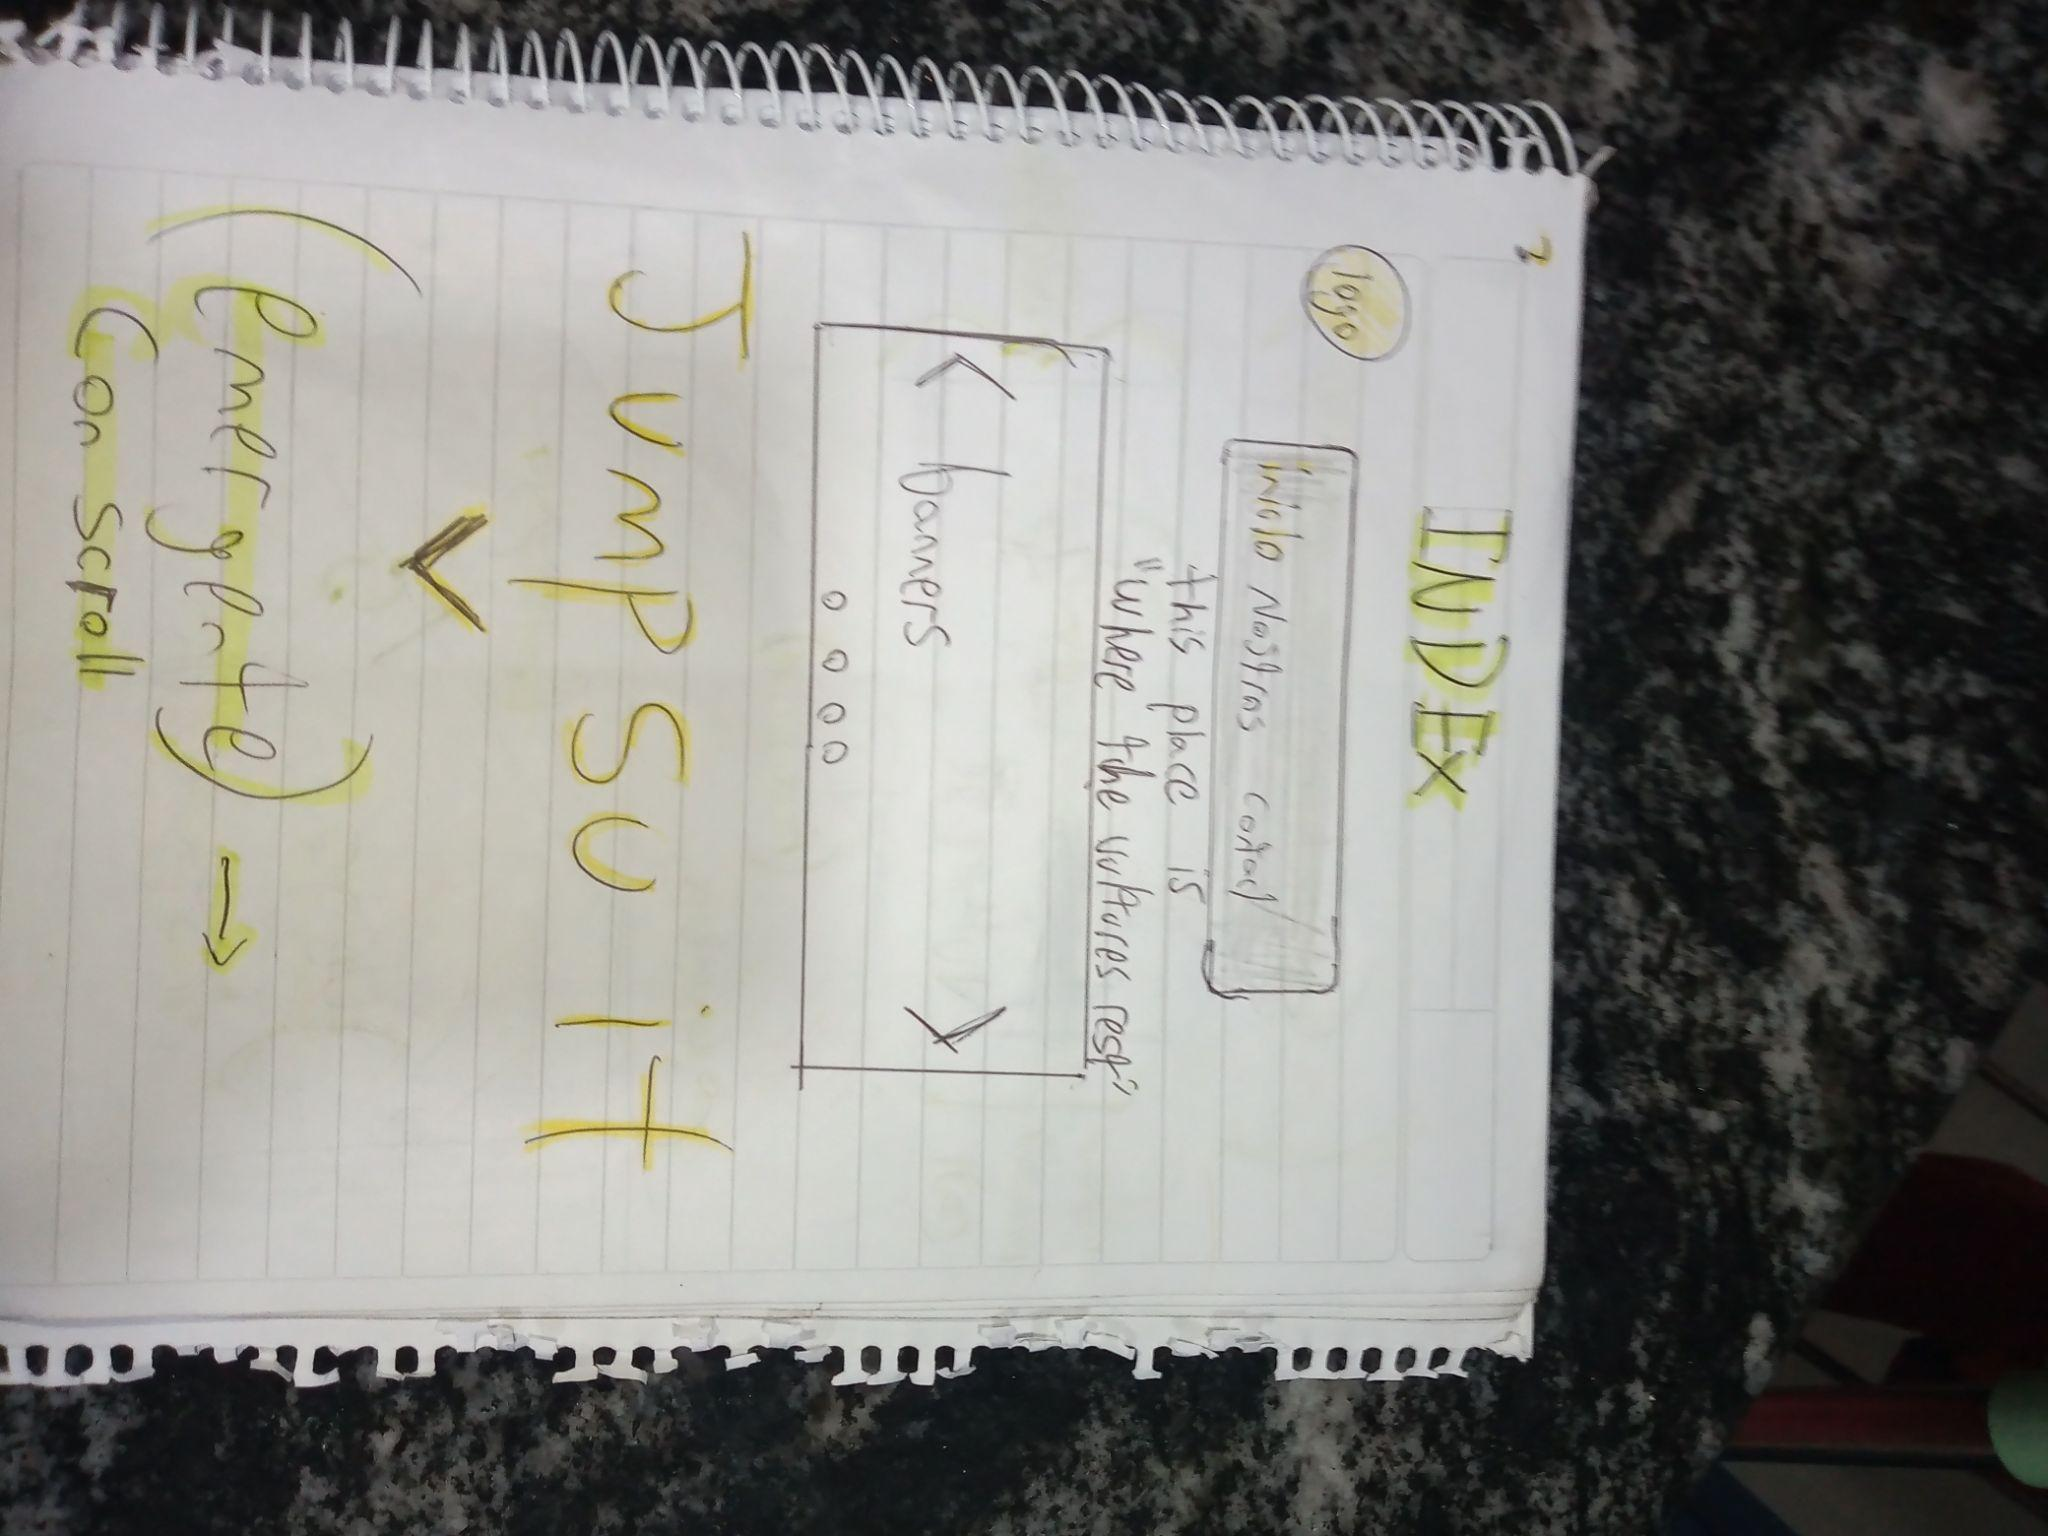 INDEX
logo
inicio Nostros contact
this place is
"where the vultures rest"
< banners >
Jumpsuit
(emergente) →
Con scroll